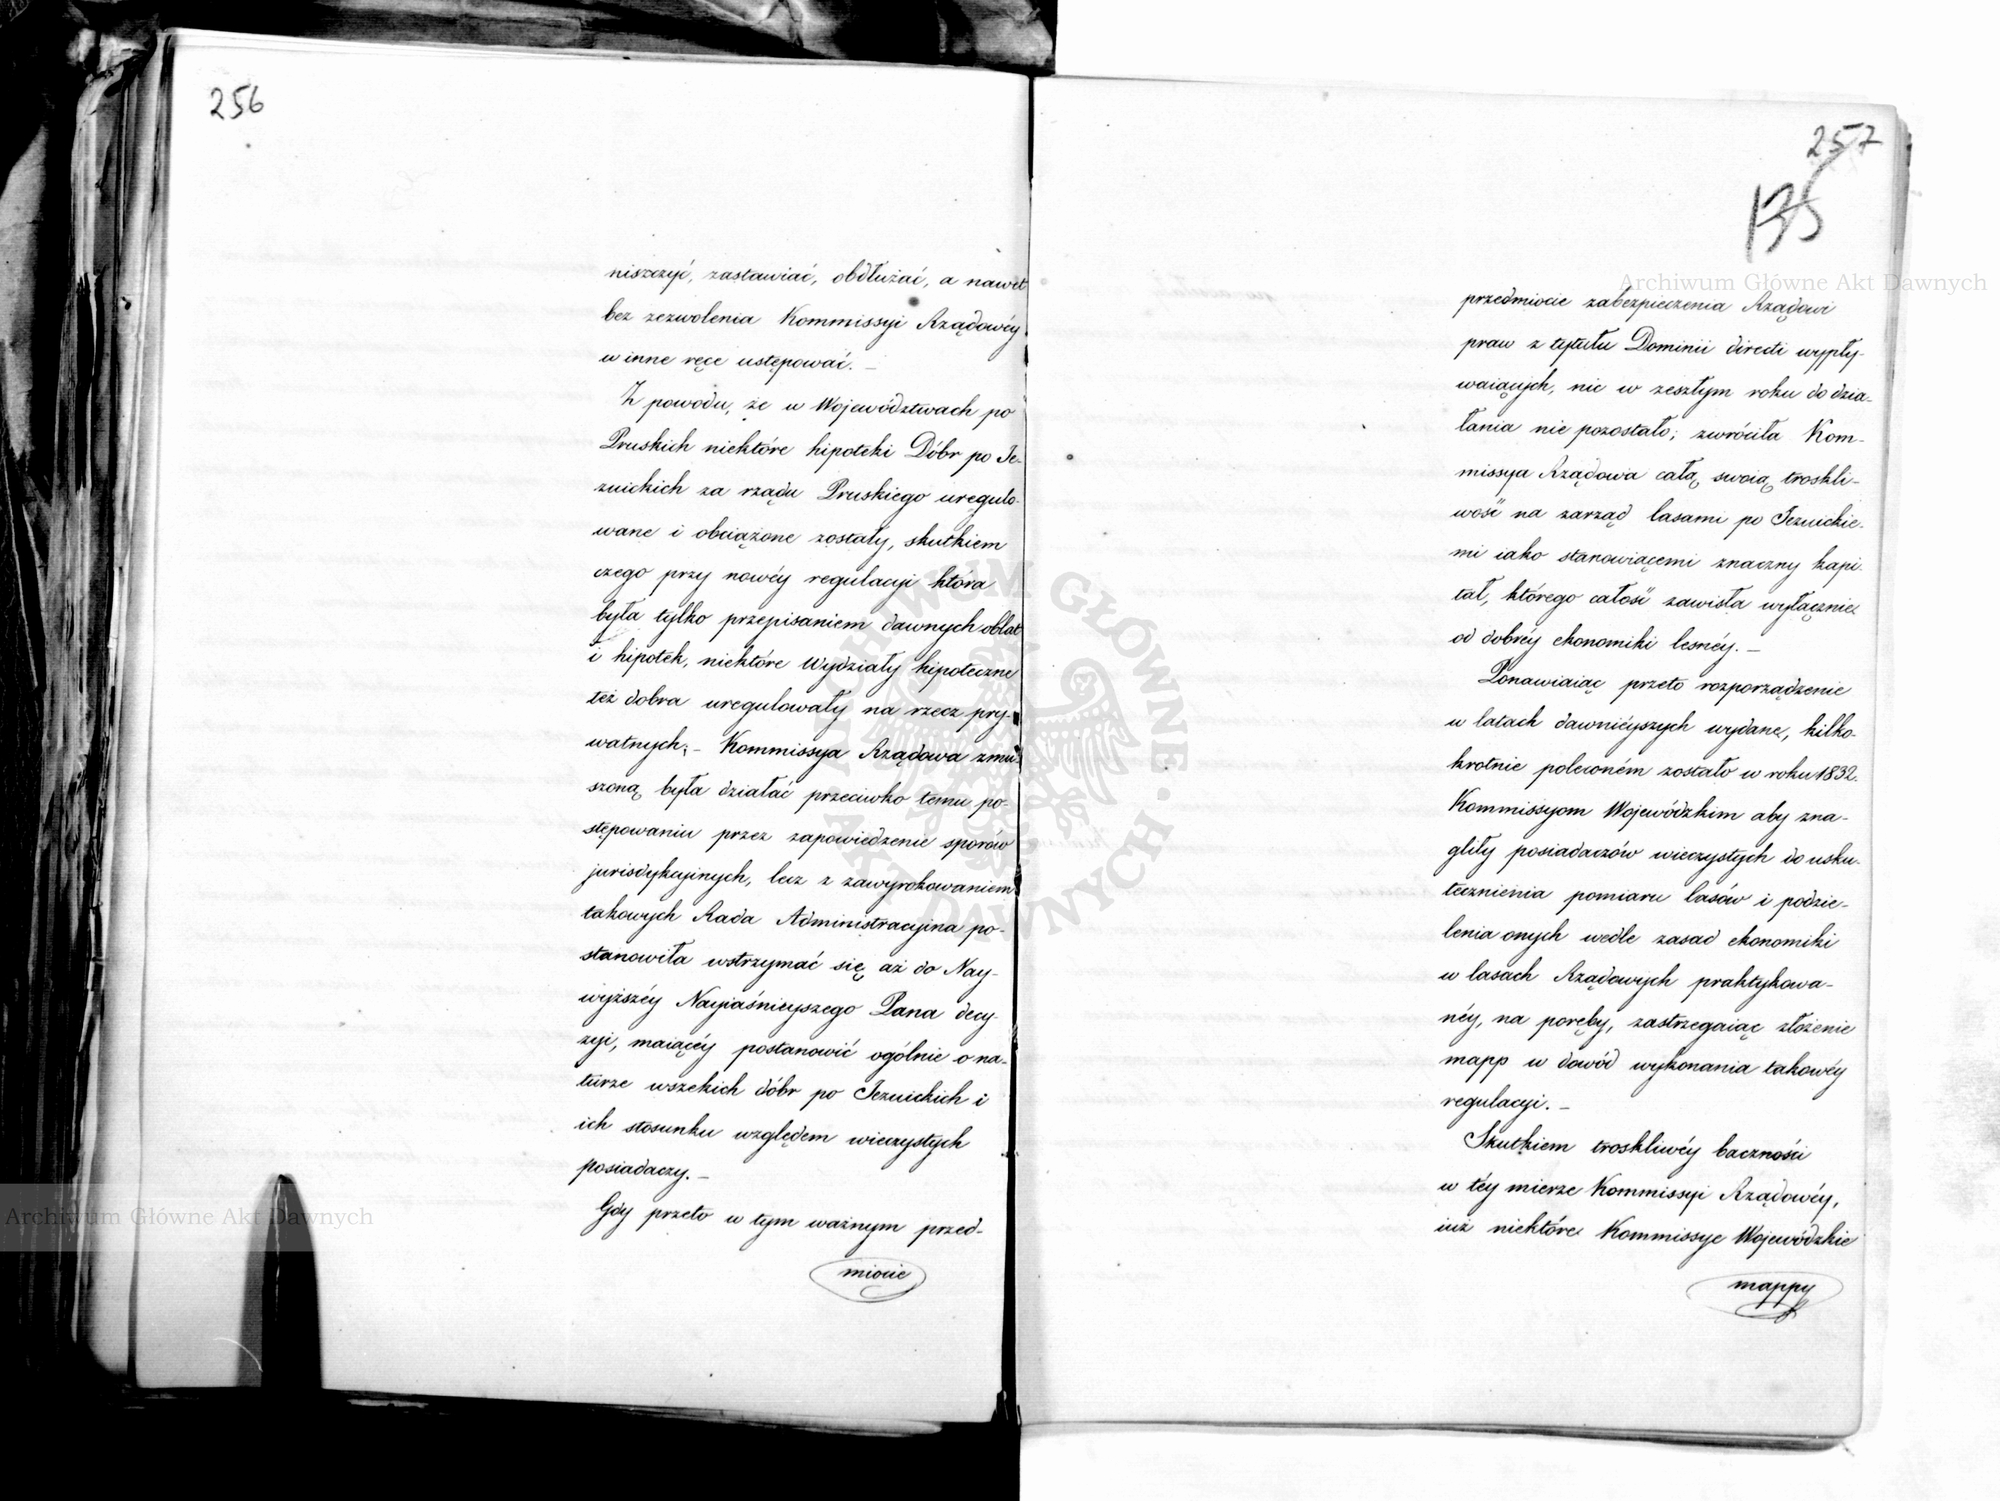 256
niszczyć, zastawiać, obdłużać, a nawet
bez zezwolenia Kommissyi Rządowéy
w inne ręce ustępować. –
Z powodu, że w Województwach po
Pruskich niektóre hipoteki Dóbr po Je-
zuickich za rządu Pruskiego uregulo-
wane i obciążone zostały, skutkiem
czego przy nowéy regulacyi która
była tylko przepisaniem dawnych oblat
i hipotek, niektóre Wydziały hipoteczne
też dobra uregulowały na rzecz pry-
watnych; – Kommissya Rządowa zmu-
szoną była działać przeciwko temu po-
stępowaniu przez zapowiedzenie sporów
jurisdykcyinych, lecz z zawyrokowaniem
takowych Rada Administracyina po-
stanowiła wstrzymać się aż do Nay-
wyższéy Nayiaśnieyszego Pana decy-
zyi, maiącéy postanowić ogólnie o na-
turze wszelkich dóbr po Jezuickich i
ich stosunku względem wieczystych
posiadaczy. –
Gdy przeto w tym ważnym przed-
miocie
257
135
przedmiocie zabezpieczenia Rządowi
praw z tytułu Dominii directi wypły-
waiących, nic w zeszłym roku do dzia-
łania nie pozostało; zwróciła Kom-
missya Rządowa całą swoią troskli-
wość na zarząd lasami po Jezuickie-
mi iako stanowiącemi znaczny kapi-
tał, którego całość zawisła wyłącznie
od dobréy ekonomiki lesnéy. –
Ponawiaiąc przeto rozporządzenie
w latach dawniéyszych wydane, kilko-
krotnie poleconém zostało w roku 1832.
Kommissyom Wojewódzkim aby zna-
gliły posiadaczów wieczystych do usku-
tecznienia pomiaru lasów i podzie-
lenia onych wedle zasad ekonomiki
w lasach Rządowych praktykowa-
néy, na poręby, zastrzegaiąc złożenie
mapp w dowód wykonania takowéy
regulacyi. –
Skutkiem troskliwéy baczności
w téy mierze Kommissyi Rządowéy,
iuż niektóre Kommissye Wojewódzkie
mappy
Archiwum Główne Akt Dawnych
Archiwum Główne Akt Dawnych
ARCHIWUM GŁÓWNE AKT DAWNYCH